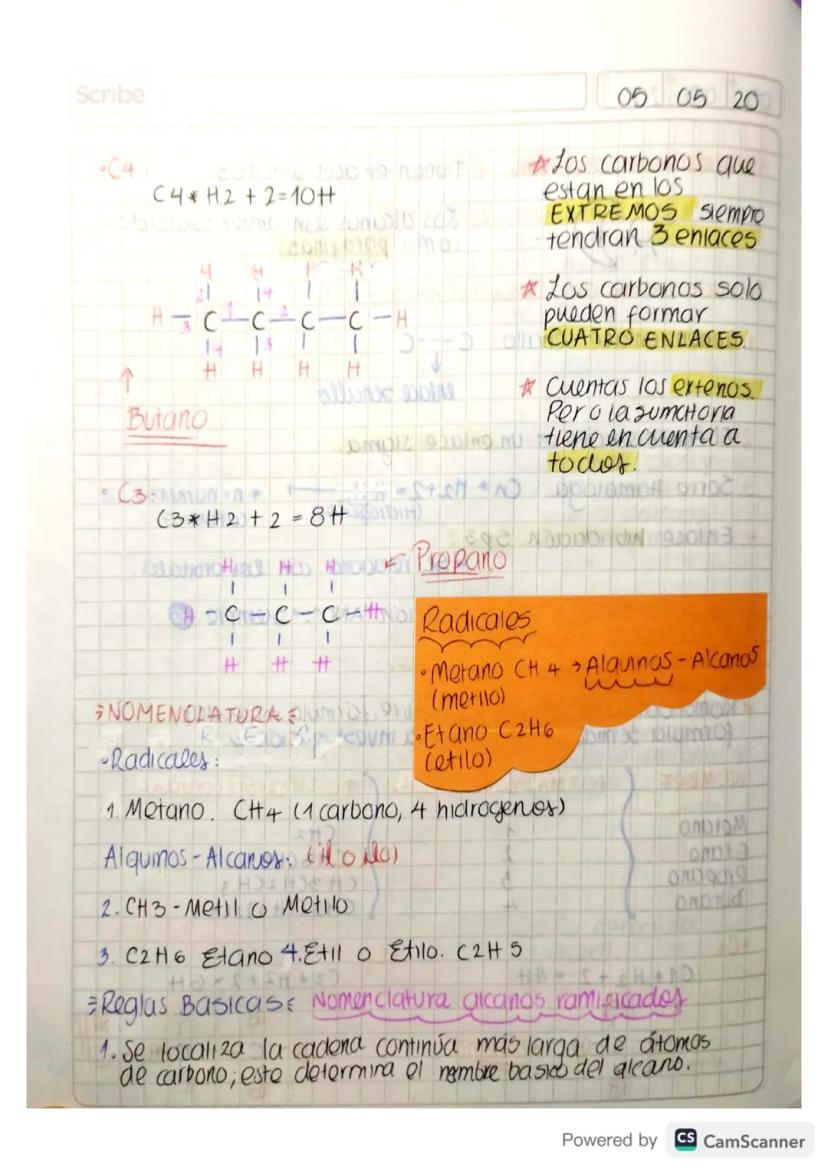 Scribe
05 05 20
•C4
C4*H2+2=10H
H H H H
H-C-C-C-C-H
H H H H
Butano
☆Los carbonos que
estan en los
EXTREMOS siempre
tendran 3 enlaces
☆ Los carbonos solo
pueden formar
CUATRO ENLACES.
☆ Cuentas los
Pero la
tiene en cuenta a
todos.
• C3:
C3*H2+2=8H
Propano
H H H
H-C-C-C-H
H H H
Radicales
•Metano CH4 → Alquinos-Alcanos
(metilo)
•Etano C2H6
(etilo)
NOMENCLATURA:
•Radicales:
1. Metano. CH4 (1 carbono, 4 hidrogenos)
Alquinos-Alcanos: (il o ilo)
2. CH3-Metil o Metilo
3. C2H6 Etano 4. Etil o Etilo. C2H5
Reglas Basicas: Nomenclatura alcanos ramificados
1. Se localiza la cadena continúa más larga de átomos
de carbono; este determina el nombre basico del alcano.
Powered by CS CamScanner